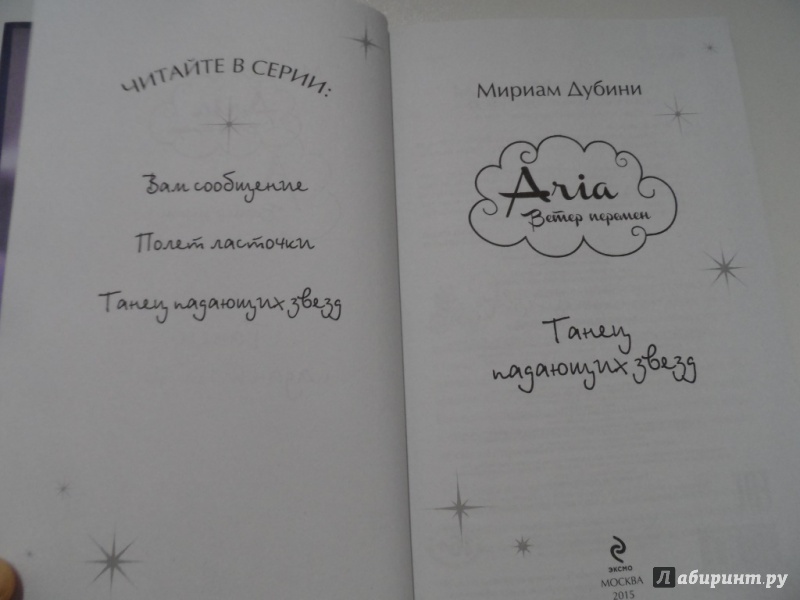 ЧИТАЙТЕ В СЕРИИ:
Вам сообщение
Полет ласточки
Танец падающих звезд
Мириам Дубини
Aria
Ветер перемен
Танец
падающих звезд
ЭКСМО
МОСКВА
2015
Лабиринт.ру